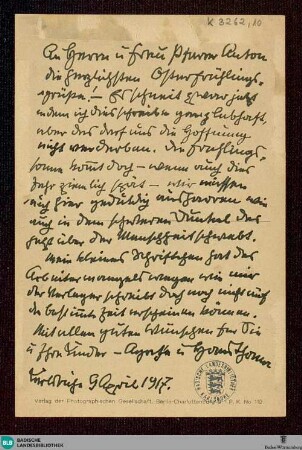 K 3262,10
An Herrn u Frau Pfarrer Anton
die herzlichsten Osterfrühlings-
grüße! – Es schneit zwar jetzt
indem ich dies schreibe ganz lebhaft,
aber das darf uns die Hoffnung
nicht verderben. die Frühlings-
sonne kommt doch – wenn auch dies
Jahr ziemlich spät – wir müssen
auch hier geduldig ausharren wie
auch in dem schweren Dunkel das
jetzt über der Menschheit schwebt.
Mein kleines Schriftchen hat des
Arbeitermangels wegen wie mir
der Verleger schreibt doch noch nicht auf
die bestimmte Zeit erscheinen können.
Mit allen guten Wünschen für Sie
u Ihre Kinder – Agathe u Hans Thoma
Karlsruhe 9 April 1917.
Verlag der Photographischen Gesellschaft, Berlin-Charlottenburg
P. K. No
BLB BADISCHE
LANDESBIBLIOTHEK
Baden-Württemberg